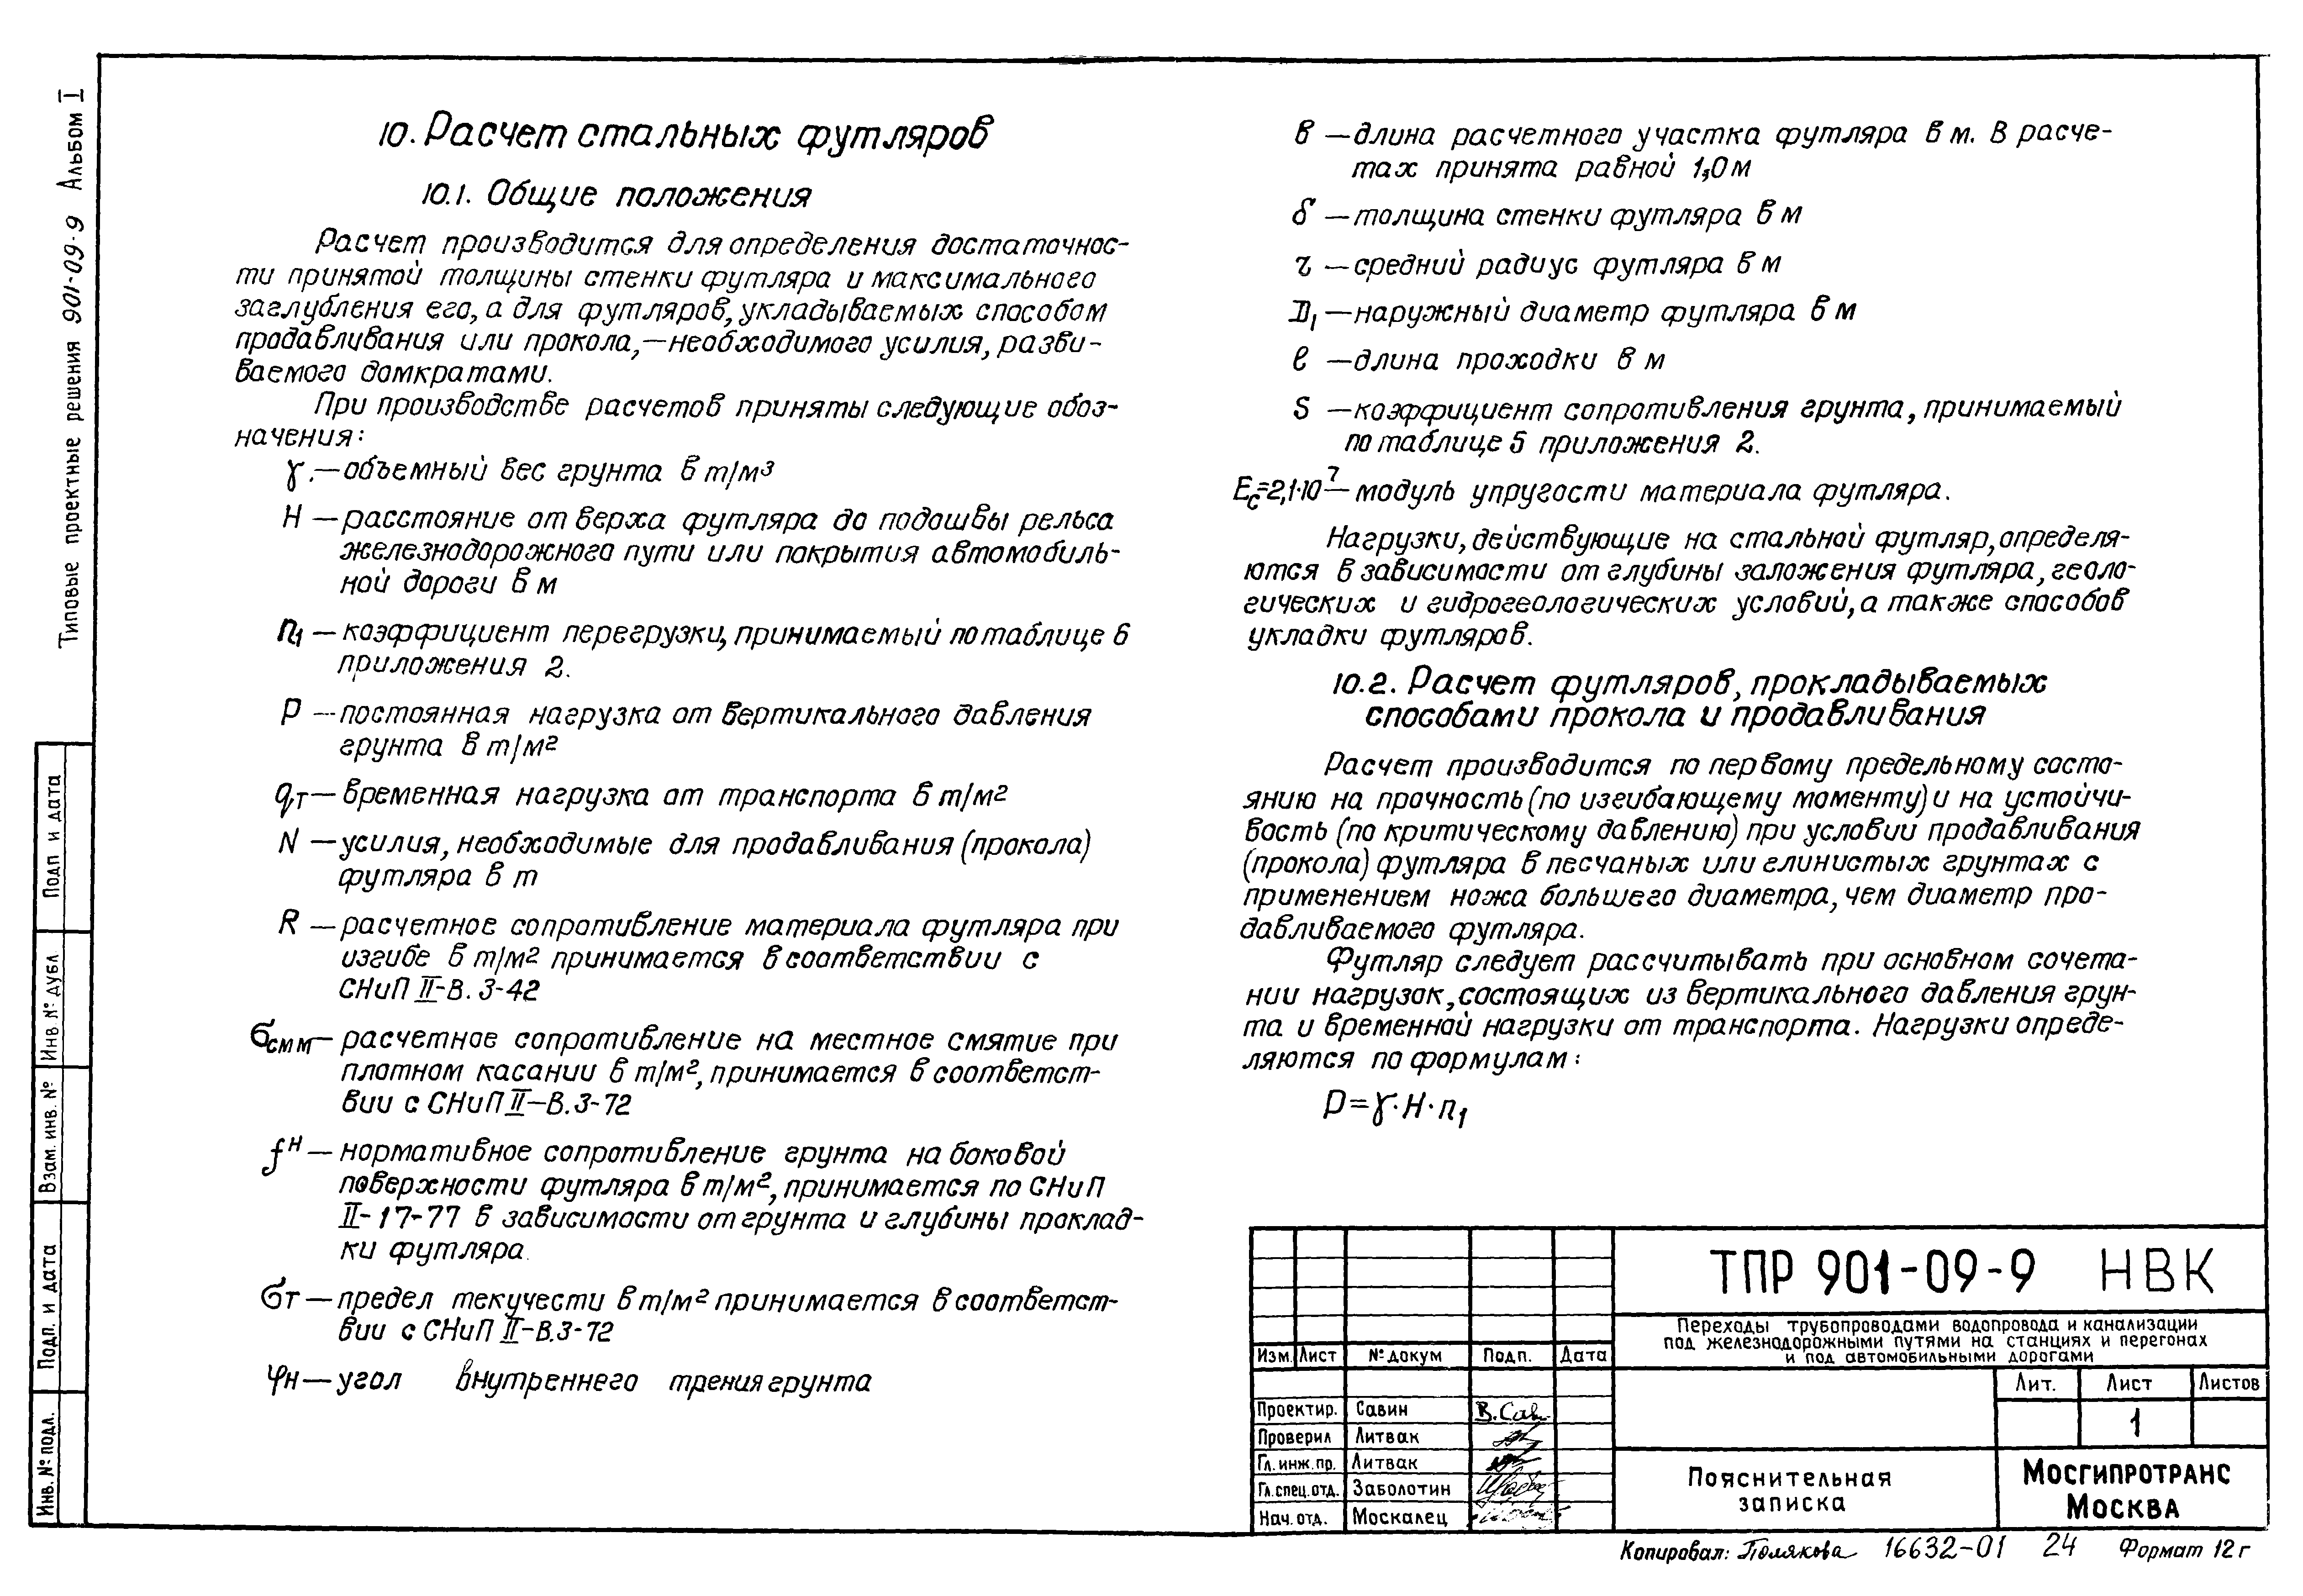 Типовые проектные решения 901-09-9 Альбом I
10. Расчет стальных футляров
10.1. Общие положения
Расчет производится для определения достаточнос-
ти принятой толщины стенки футляра и максимального
заглубления его, а для футляров, укладываемых способом
продавливания или прокола,—необходимого усилия, разви-
ваемого домкратами.
При производстве расчетов приняты следующие обоз-
начения:
γ.—объемный вес грунта в т/м³
H —расстояние от верха футляра до подошвы рельса
железнодорожного пути или покрытия автомобиль-
ной дороги в м
n₁ — коэффициент перегрузки, принимаемый по таблице 6
приложения 2.
P —постоянная нагрузка от вертикального давления
грунта в т/м²
qт—временная нагрузка от транспорта в т/м²
N —усилия, необходимые для продавливания (прокола)
футляра в т
R —расчетное сопротивление материала футляра при
изгибе в т/м² принимается в соответствии с
СНиП II-В. 3-42
σсмм—расчетное сопротивление на местное смятие при
плотном касании в т/м², принимается в соответст-
вии с СНиП II—В.3-72
fᴴ — нормативное сопротивление грунта на боковой
поверхности футляра в т/м², принимается по СНиП
II-17-77 в зависимости от грунта и глубины проклад-
ки футляра.
σт—предел текучести в т/м² принимается в соответст-
вии с СНиП II-В.3-72
φн—угол внутреннего трения грунта
в —длина расчетного участка футляра в м. В расче-
тах принята равной 1,0 м
δ —толщина стенки футляра в м
r —средний радиус футляра в м
D₁—наружный диаметр футляра в м
ℓ —длина проходки в м
S —коэффициент сопротивления грунта, принимаемый
по таблице 5 приложения 2.
Eс=2,1·10⁷—модуль упругости материала футляра.
Нагрузки, действующие на стальной футляр, определя-
ются в зависимости от глубины заложения футляра, геоло-
гических и гидрогеологических условий, а также способов
укладки футляров.
10.2. Расчет футляров, прокладываемых
способами прокола и продавливания
Расчет производится по первому предельному состо-
янию на прочность (по изгибающему моменту) и на устойчи-
вость (по критическому давлению) при условии продавливания
(прокола) футляра в песчаных или глинистых грунтах с
применением ножа большего диаметра, чем диаметр про-
давливаемого футляра.
Футляр следует рассчитывать при основном сочета-
нии нагрузок, состоящих из вертикального давления грун-
та и временной нагрузки от транспорта. Нагрузки опреде-
ляются по формулам:
P=γ·H·n₁
Подп и дата
Инв № дубл
Взам. инв. №
Подп. и дата
Инв. № подл.
ТПР 901-09-9 НВК
Переходы трубопроводами водопровода и канализации
под железнодорожными путями на станциях и перегонах
и под автомобильными дорогами
Изм. Лист № докум Подп. Дата
Лит. Лист Листов
1
Проектир. Савин В.Сав
Проверил Литвак
Гл. инж. пр. Литвак
Гл. спец. отд. Заболотин
Нач. отд. Москалец
Пояснительная
записка
Мосгипротранс
Москва
Копировал: Полякова 16632-01 24 Формат 12г